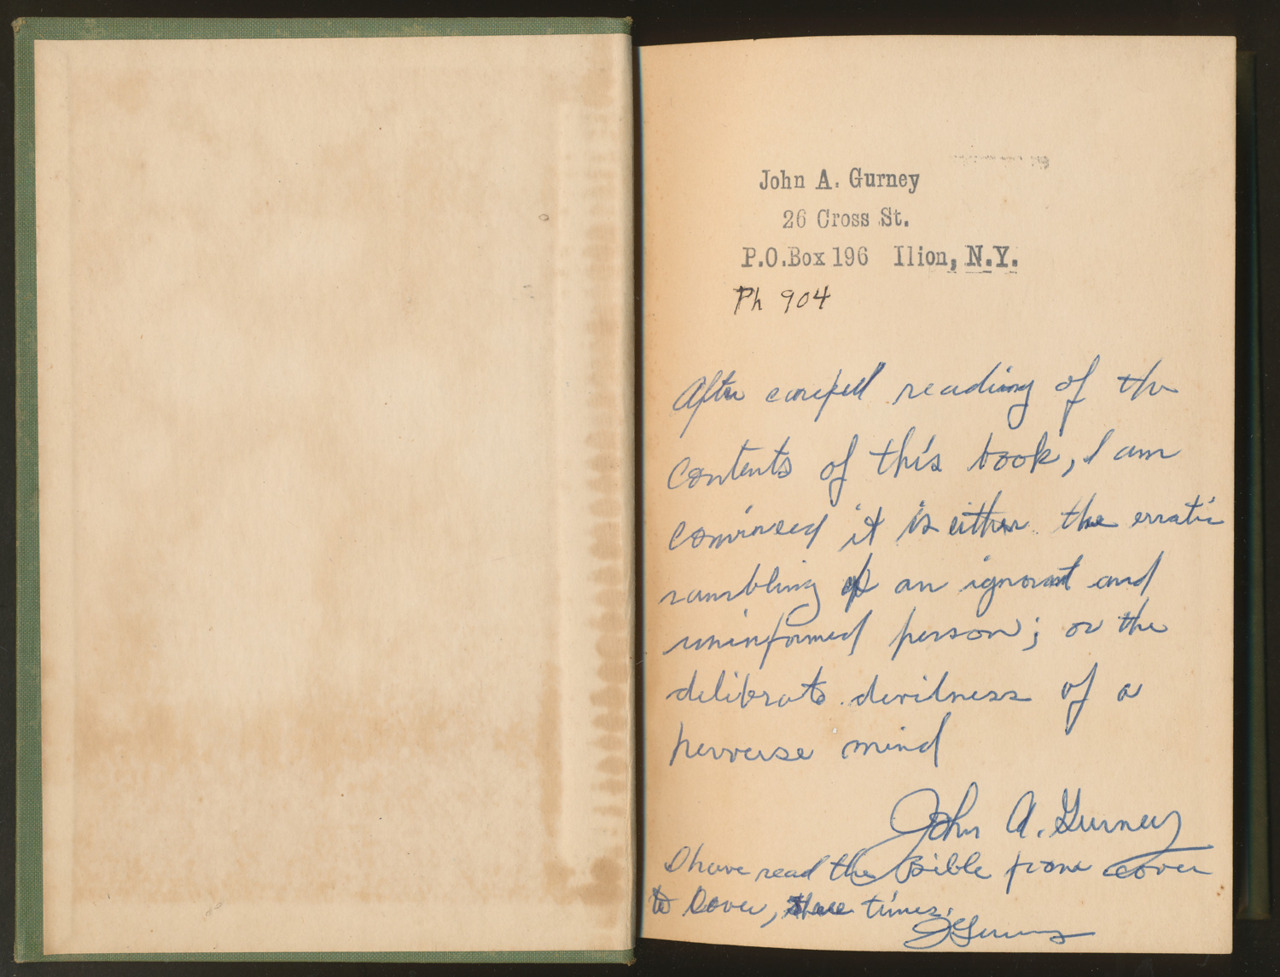 John A. Gurney
26 Cross St.
P.O.Box 196 Ilion, N.Y.
Ph 904
After careful reading of the
contents of this book, I am
convinced it is either the erratic
rambling of an ignorant and
uninformed person; or the
deliberate devilness of a
perverse mind
John A. Gurney
I have read the Bible from cover
to cover, three times.
JGurney